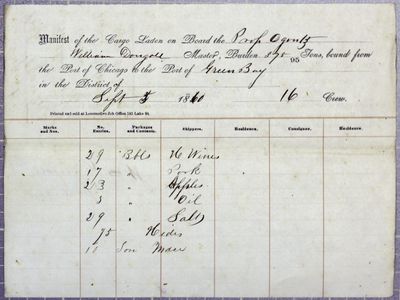 Manifest of the Cargo Laden on Board the Prop Ogontz
William Dougall Master, Burden 395 95 Tons, bound from
the Port of Chicago to the Port of Green Bay
in the District of
Sept 5 1860 16 Crew.
Printed and sold at Locomotive Job Office, 181 Lake St.
Marks and Nos. No. Entries. Packages and Contents. Shippers. Residence. Consignee. Residence.
29 Bbls H Wines
17 " Pork
23 " Apples
5 " Oil
29 " Salt
75 Hides
11 Ton Mdse